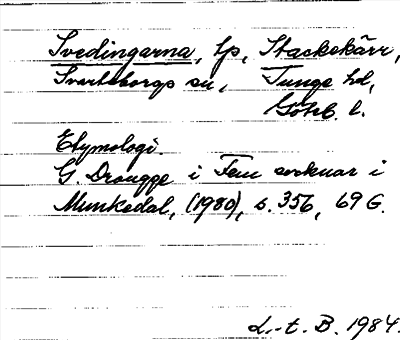 Svedingarna, lp, Stackekärr,
Svarteborgs sn, Tunge hd,
Göteb. l.
Etymologi.
G. Drougge i Fem socknar i
Munkedal, (1980), s. 356, 69 G.
L-t. B. 1984.